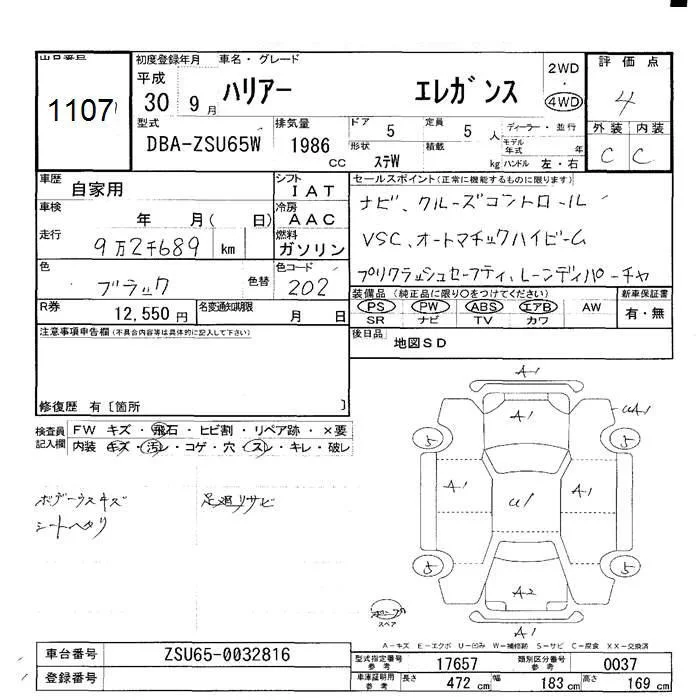 出品番号 初度登録年月 車名・グレード 評価点
1107 平成 30 9月 ハリアー エレガンス 2WD ・ 4WD 4
型式 排気量 ドア 5 定員 5 人 ディーラー・並行 外装 内装
DBA-ZSU65W 1986 CC 形状 ステW 積載 kg モデル年式 年 ハンドル 左・右 C C
車歴 自家用 シフト IAT セールスポイント(正常に機能するものに限ります)
車検 年 月( 日) 冷房 AAC ナビ、クルーズコントロール
走行 9万2千689 km 燃料 ガソリン VSC、オートマチックハイビーム
色 ブラック 色替 色コード 202 プリクラッシュセーフティ、レーンディパーチャ
R券 12,550円 名変通知期限 月 日 装備品(純正品に限り○をつけてください) 新車保証書
PS PW ABS エアB AW 有・無
SR ナビ TV カワ
注意事項申告欄(不具合内容等は具体的に記入して下さい) 後日品 地図SD
修復歴 有〔箇所 〕
検査員記入欄 FW キズ・飛石・ヒビ割・リペア跡・×要
内装 キズ・汚レ・コゲ・穴・スレ・キレ・破レ
ボデーウスキズ 足廻リサビ
シートヘタリ
A-1
A1 UA1
5 5
A1 U1 A1
5 5
A2
スペア
A1
A-キズ E-エクボ U-凹み W-補修跡 S-サビ C-腐食 XX-交換済
車台番号 ZSU65-0032816 型式指定番号 参考 17657 類別区分番号 参考 0037
登録番号 車庫証明用 参考 長さ 472 cm 幅 183 cm 高さ 169 cm